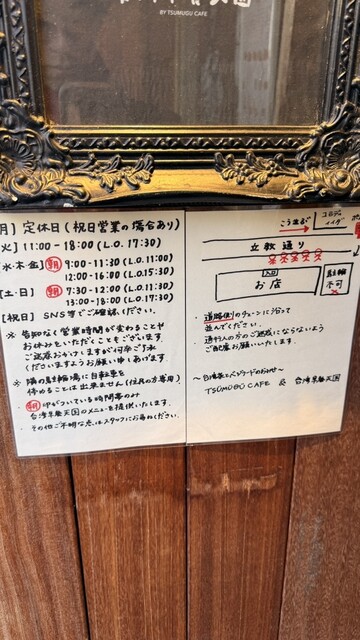 BY TSUMUGU CAFE
月] 定休日 (祝日営業の場合あり)
火] 11:00-18:00 (L.O. 17:30)
水・木・金] 朝 9:00-11:30 (L.O.11:00)
12:00-16:00 (L.O.15:30)
[土・日] 朝 7:30-12:00 (L.O.11:30)
13:00-18:00 (L.O.17:30)
[祝日] SNS等でご確認ください。
※ 告知なく営業時間が変わることや
お休みをいただくことをございます。
ご迷惑おかけしますが何卒ご了承
くださいますようお願い申しあげます。
※ 隣の駐輪場に自転車を
停めることは出来ません (住民の方専用)
朝 印がついている時間帯のみ
台湾早餐天国のメニューを提供いたします。
その他ご不明な点はスタッフにお尋ねください。
立教通り
入口
お店
駐輪
不可
・道路側のチェーンに沿って
並んでください。
・通行人の方のご迷惑にならないよう
ご配慮お願いいたします。
TSUMUGU CAFE & 台湾早餐天国